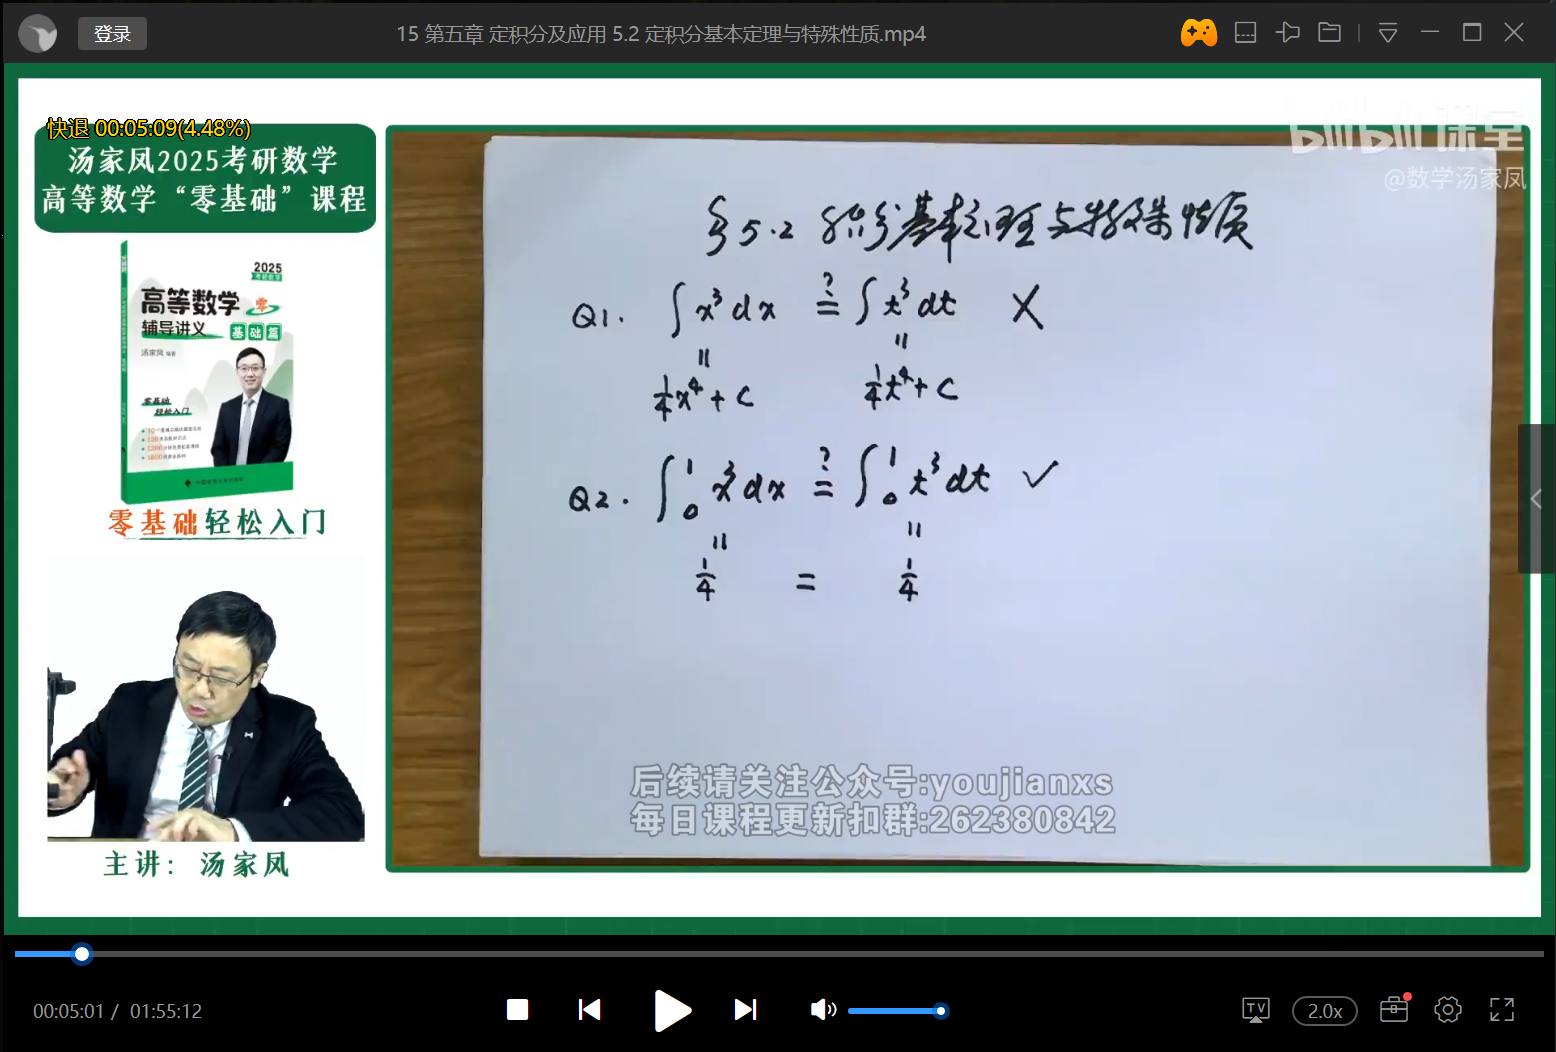 登录
15 第五章 定积分及应用 5.2 定积分基本定理与特殊性质.mp4
快退 00:05:09(4.48%)
汤家凤2025考研数学
高等数学“零基础”课程
2025
考研数学
高等数学 零
辅导讲义 基础篇
汤家凤 编著
零基础
轻松入门
零基础轻松入门
主讲：汤家凤
bilibili 课堂
@数学汤家凤
§5.2 积分基本定理与特殊性质
Q1. ∫x³dx ≟ ∫t³dt ×
॥ ॥
¼x⁴+C ¼t⁴+C
Q2. ∫₀¹x³dx ≟ ∫₀¹t³dt ✓
॥ ॥
¼ = ¼
后续请关注公众号:youjianxs
每日课程更新扣群:262380842
00:05:01 / 01:55:12
TV
2.0x